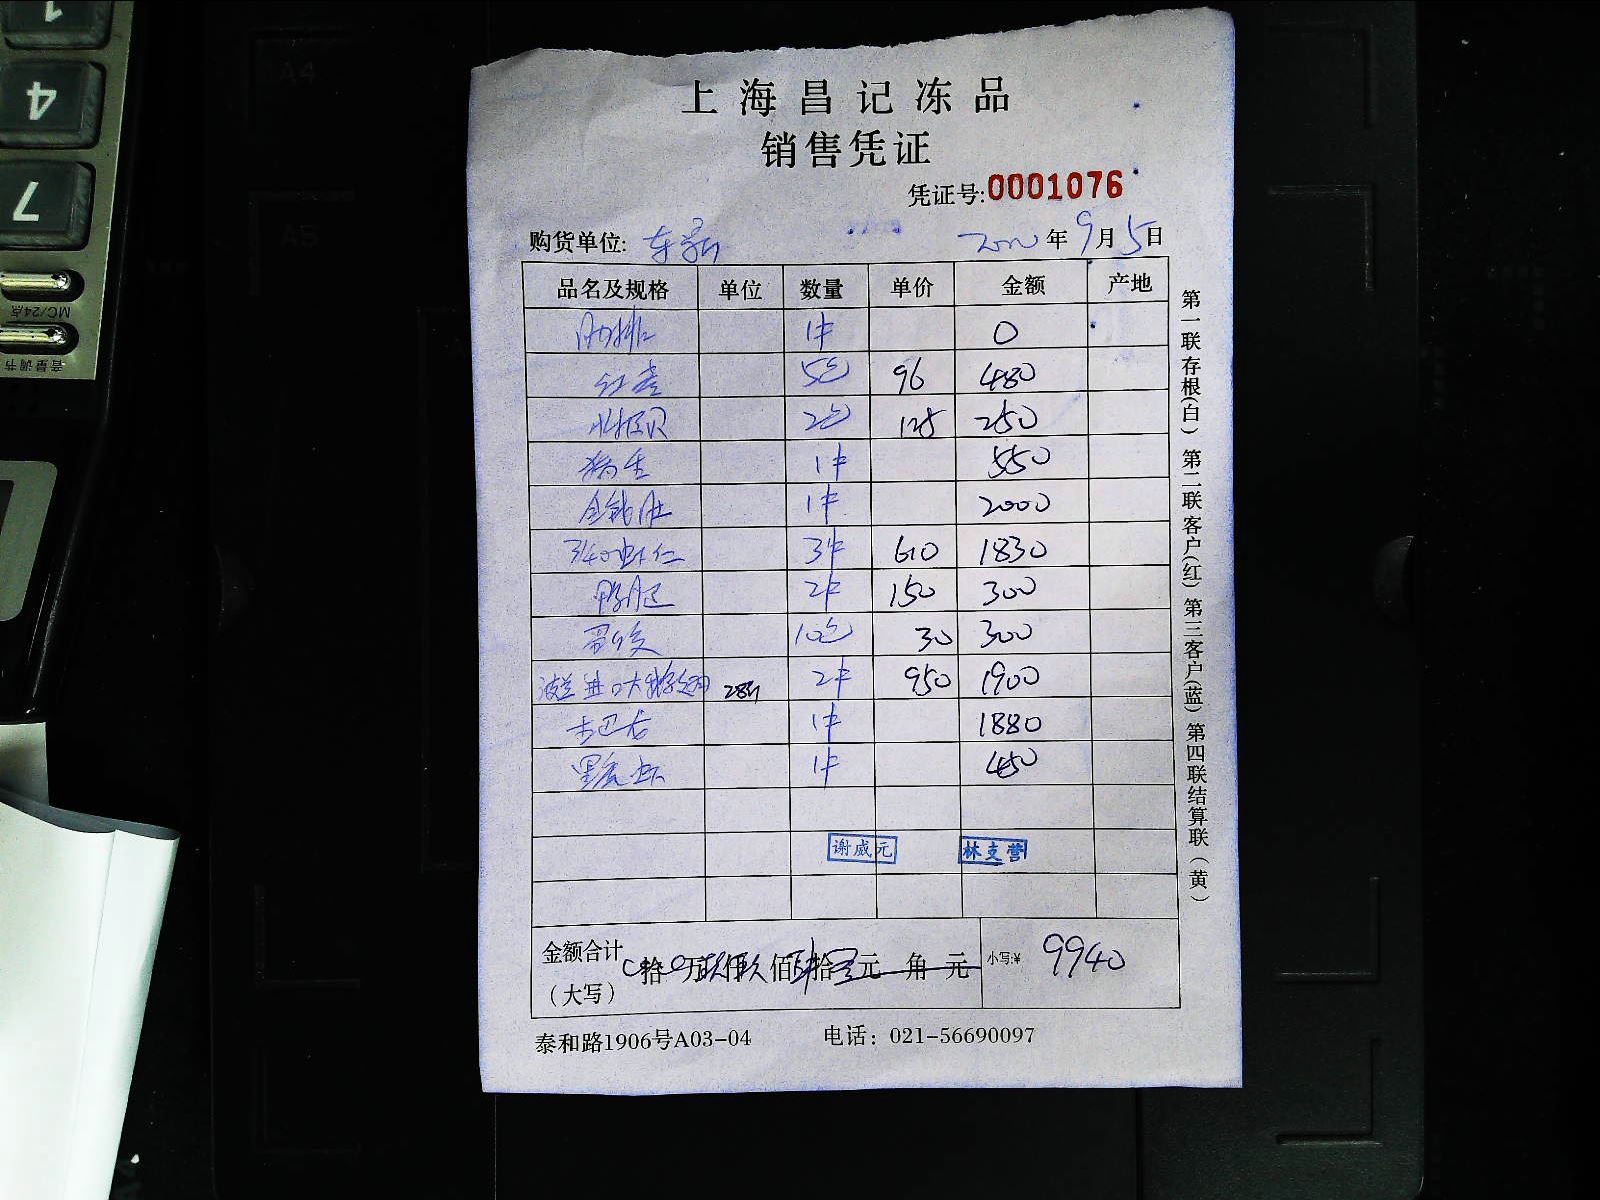 上海昌记冻品
销售凭证
凭证号:0001076
购货单位: 年9月5日
品名及规格 单位 数量 单价 金额 产地
肋排 1件 0
5包 96 480
2包 125 250
1件 550
金钱肚 1件 2000
虾仁 3件 610 1830
鸭肫 2件 150 300
10包 30 300
波兰进口大 28斤 2件 950 1900
1件 1880
黑虎虾 1件 450
谢威元 林支营
金额合计
(大写) 拾 万 仟 佰 拾 元 角 元 小写:¥ 9940
泰和路1906号A03-04 电话：021-56690097
第一联存根(白) 第二联客户(红) 第三客户(蓝) 第四联结算联(黄)
A4
A5
1
4
7
MC/24点
音量调节